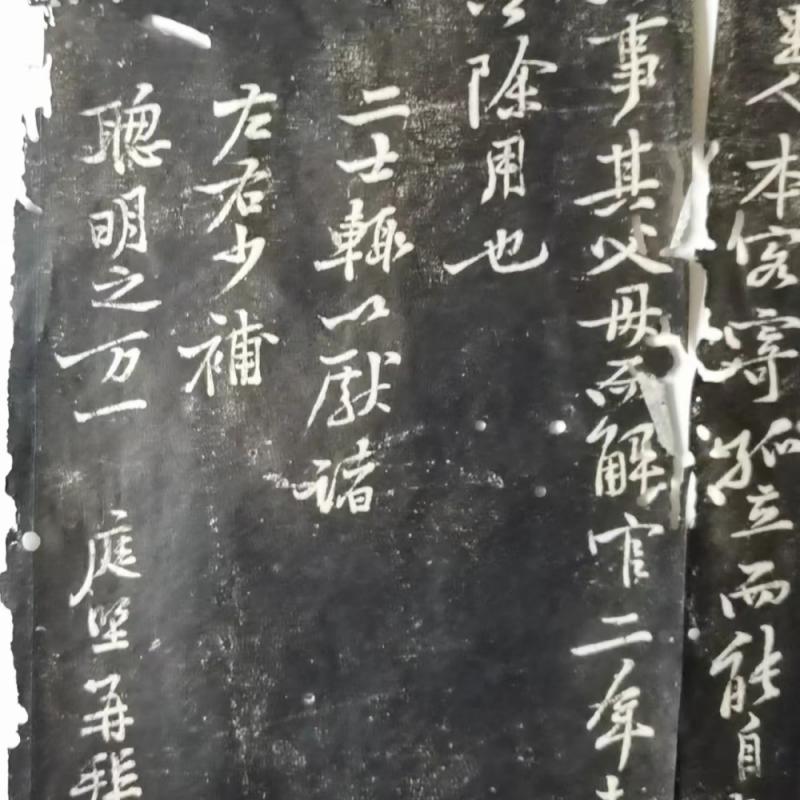 里人本客寄孤立而能自
事其父母而解官二年
除用也
二士輒以獻諸
左右少補
聰明之万一 庭堅再拜